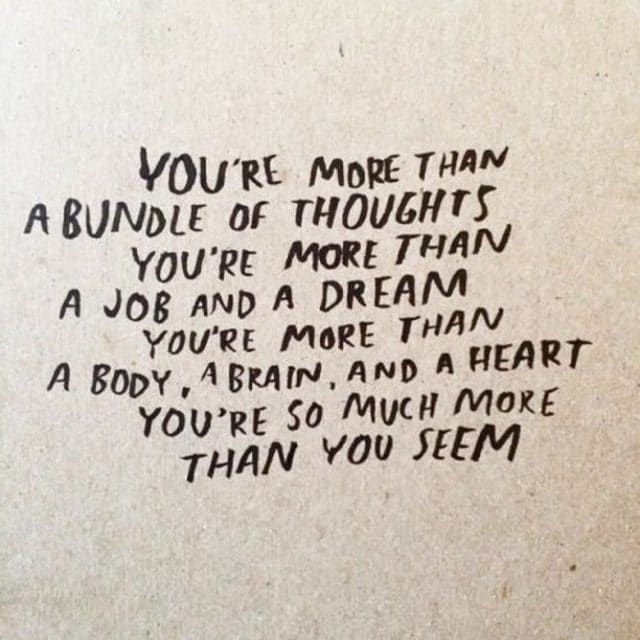 YOU'RE MORE THAN
A BUNDLE OF THOUGHTS
YOU'RE MORE THAN
A JOB AND A DREAM
YOU'RE MORE THAN
A BODY, A BRAIN, AND A HEART
YOU'RE SO MUCH MORE
THAN YOU SEEM